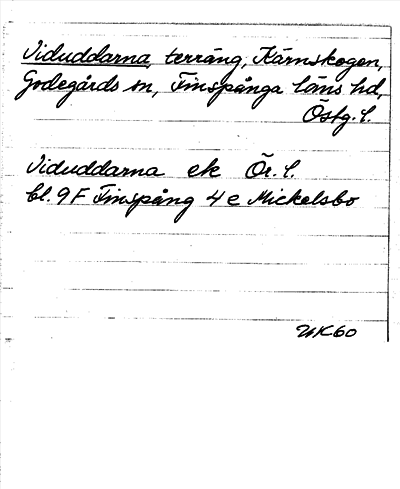 Viduddarna, terräng, Kärnskogen,
Godegårds sn, Finspånga läns hd,
Östg. l.
Viduddarna ek Ör. l.
bl. 9F Finspång 4 e Mickelsbo
UK60